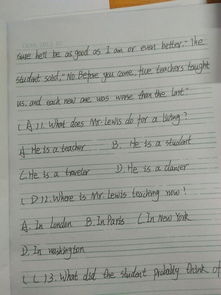 sure he'll be as good as I am or even better." The
student said, "No. Before you came, five teachers taught
us, and each new one was worse than the last."
( A )1. What does Mr. Lewis do for a living?
A. He is a teacher B. He is a student
C. He is a traveler D. He is a dancer
( D )2. Where is Mr. Lewis teaching now?
A. In London B. In Paris C. In New York
D. In Washington
( C )3. What did the student probably think of